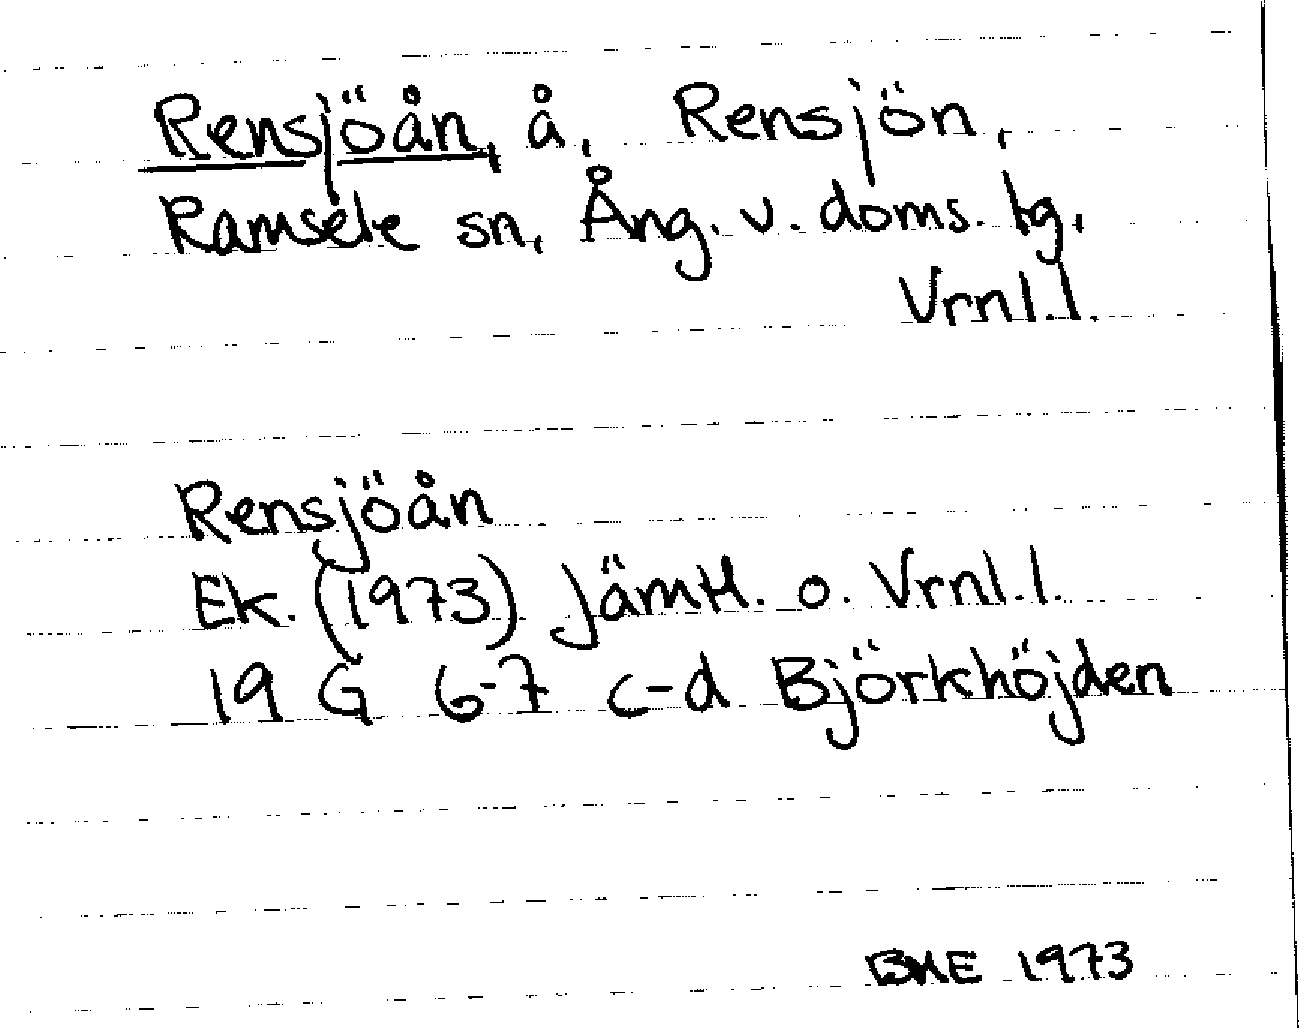 Rensjöån, å, Rensjön,
Ramsele sn, Ång. v. doms. tg,
Vrnl.l.
Rensjöån
Ek. (1973) Jämtl. o. Vrnl.l.
19 G 6-7 c-d Björkhöjden
BME 1973